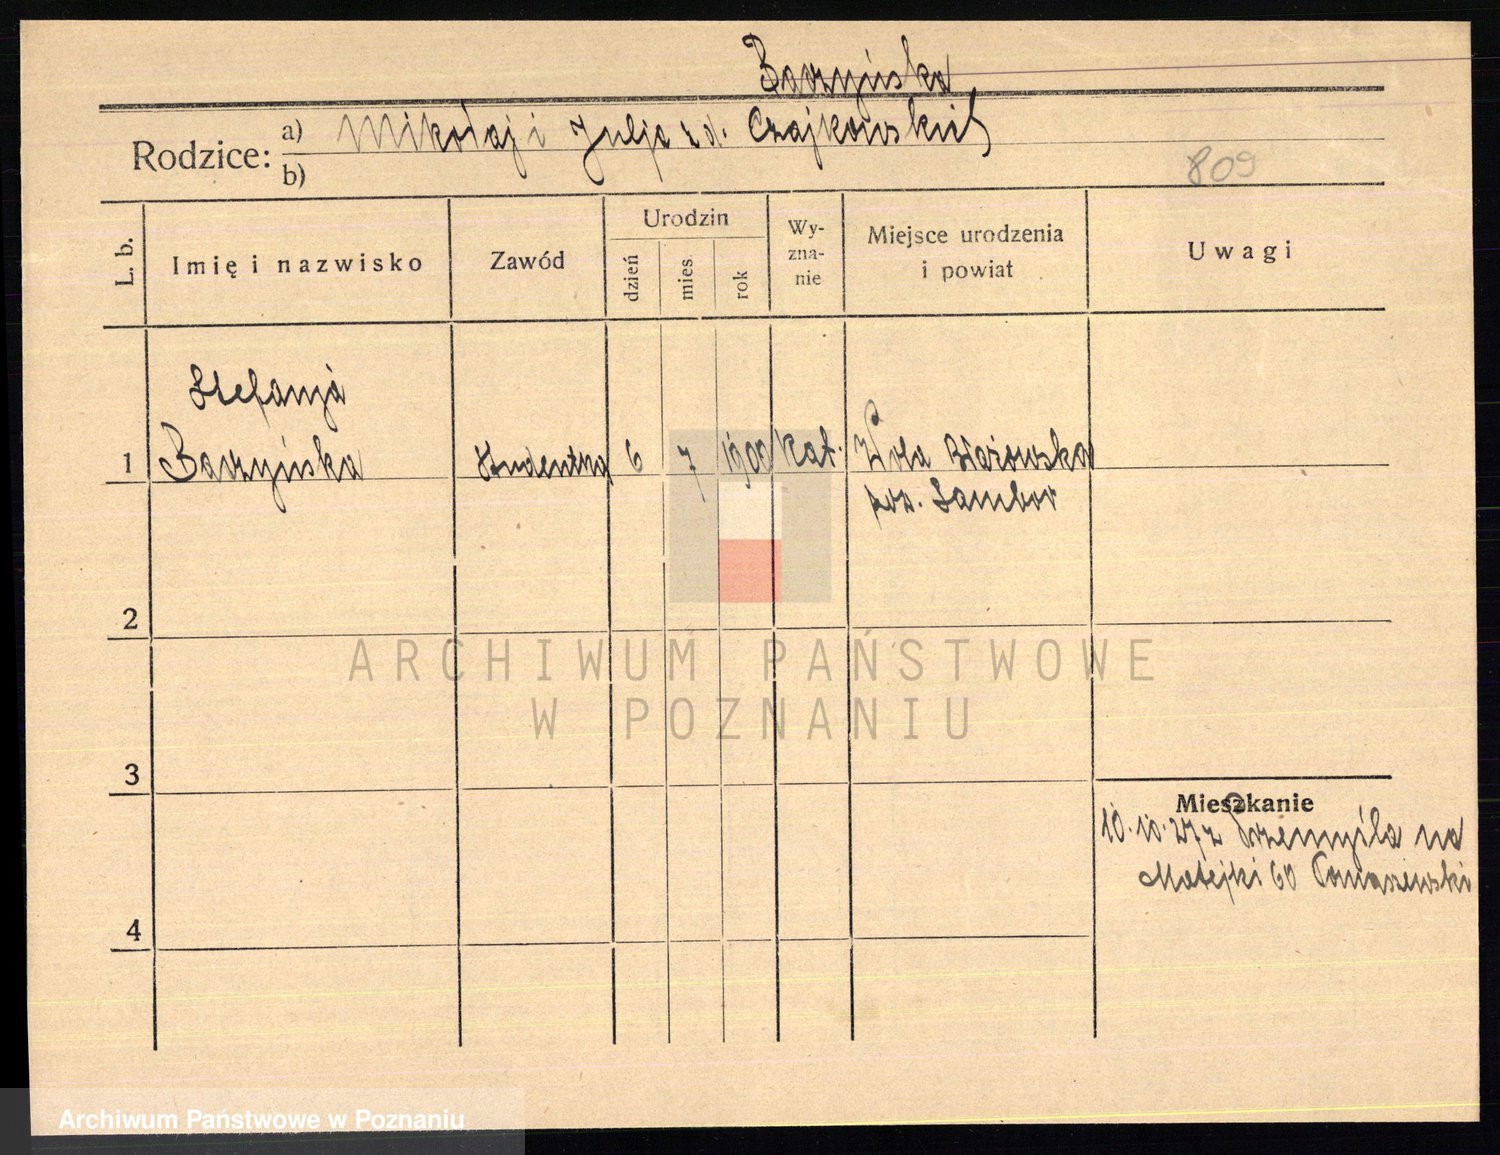 Baczyńska
Rodzice: a) Mikołaj i Julja z d. Czajkowskich
b)
809
L. b.
Imię i nazwisko
Zawód
Urodzin
dzień
mies.
rok
Wy-
zna-
nie
Miejsce urodzenia
i powiat
Uwagi
Stefanja
1 Baczyńska Studentka 6 7 1900 Kat. Wola Błażowska
pow. Sambor
2
3
4
Mieszkanie
10.10.27 z Przemyśla na
Matejki 60 Tomaszewski
ARCHIWUM PAŃSTWOWE
W POZNANIU
Archiwum Państwowe w Poznaniu